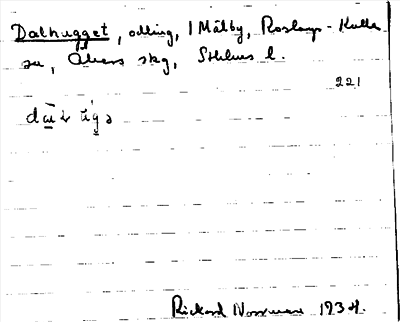 Dalhugget, odling, 1 Mälby, Roslags-Kulla
sn, Åkers skg, Sthlms l.
221
Rickard Norrman 1934.